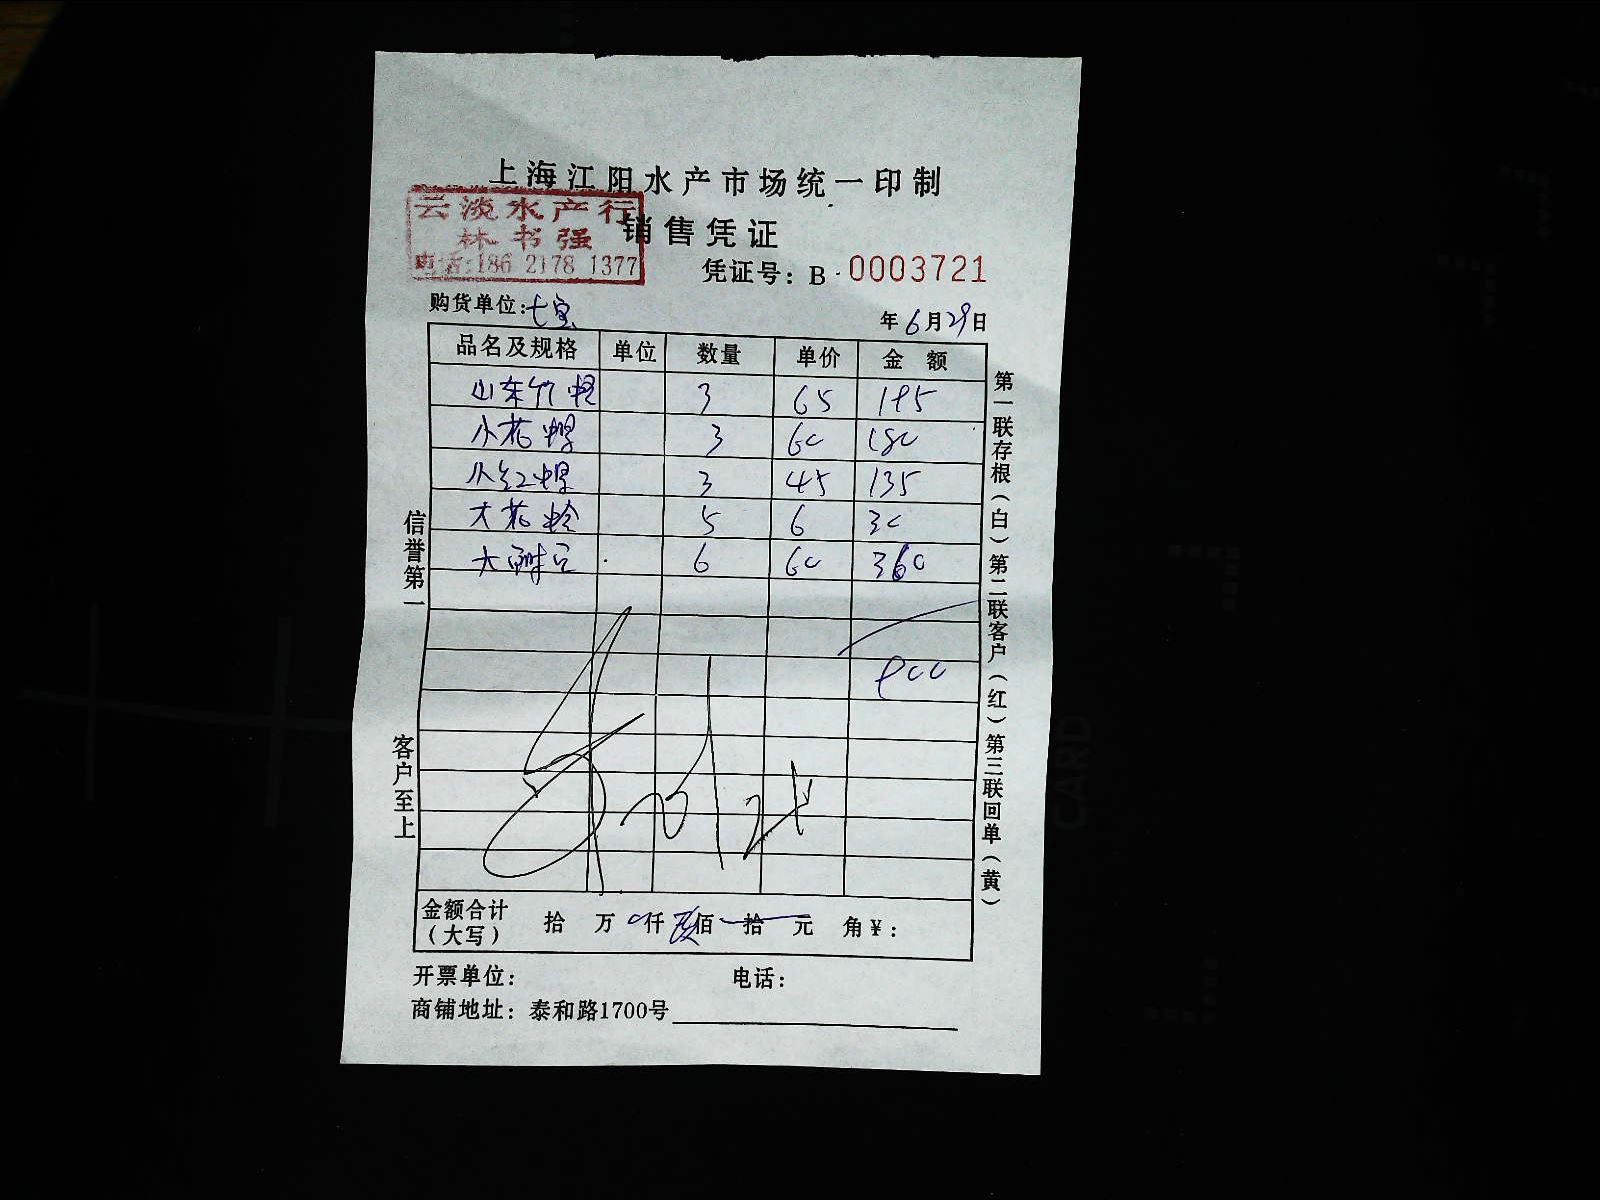 上海江阳水产市场统一印制
云淡水产行
林书强
电话:186 2178 1377
销售凭证
凭证号：B 0003721
购货单位:七宝
年6月29日
品名及规格 单位 数量 单价 金额
山东竹蛏 3 65 195
小花 3 60 180
小红 3 45 135
大花蛤 5 6 30
大 6 60 360
900
金额合计（大写） 拾 万 0仟 玖佰 拾 元 角￥：
开票单位： 电话：
商铺地址：泰和路1700号
信誉第一
客户至上
第一联存根（白）第二联客户（红）第三联回单（黄）